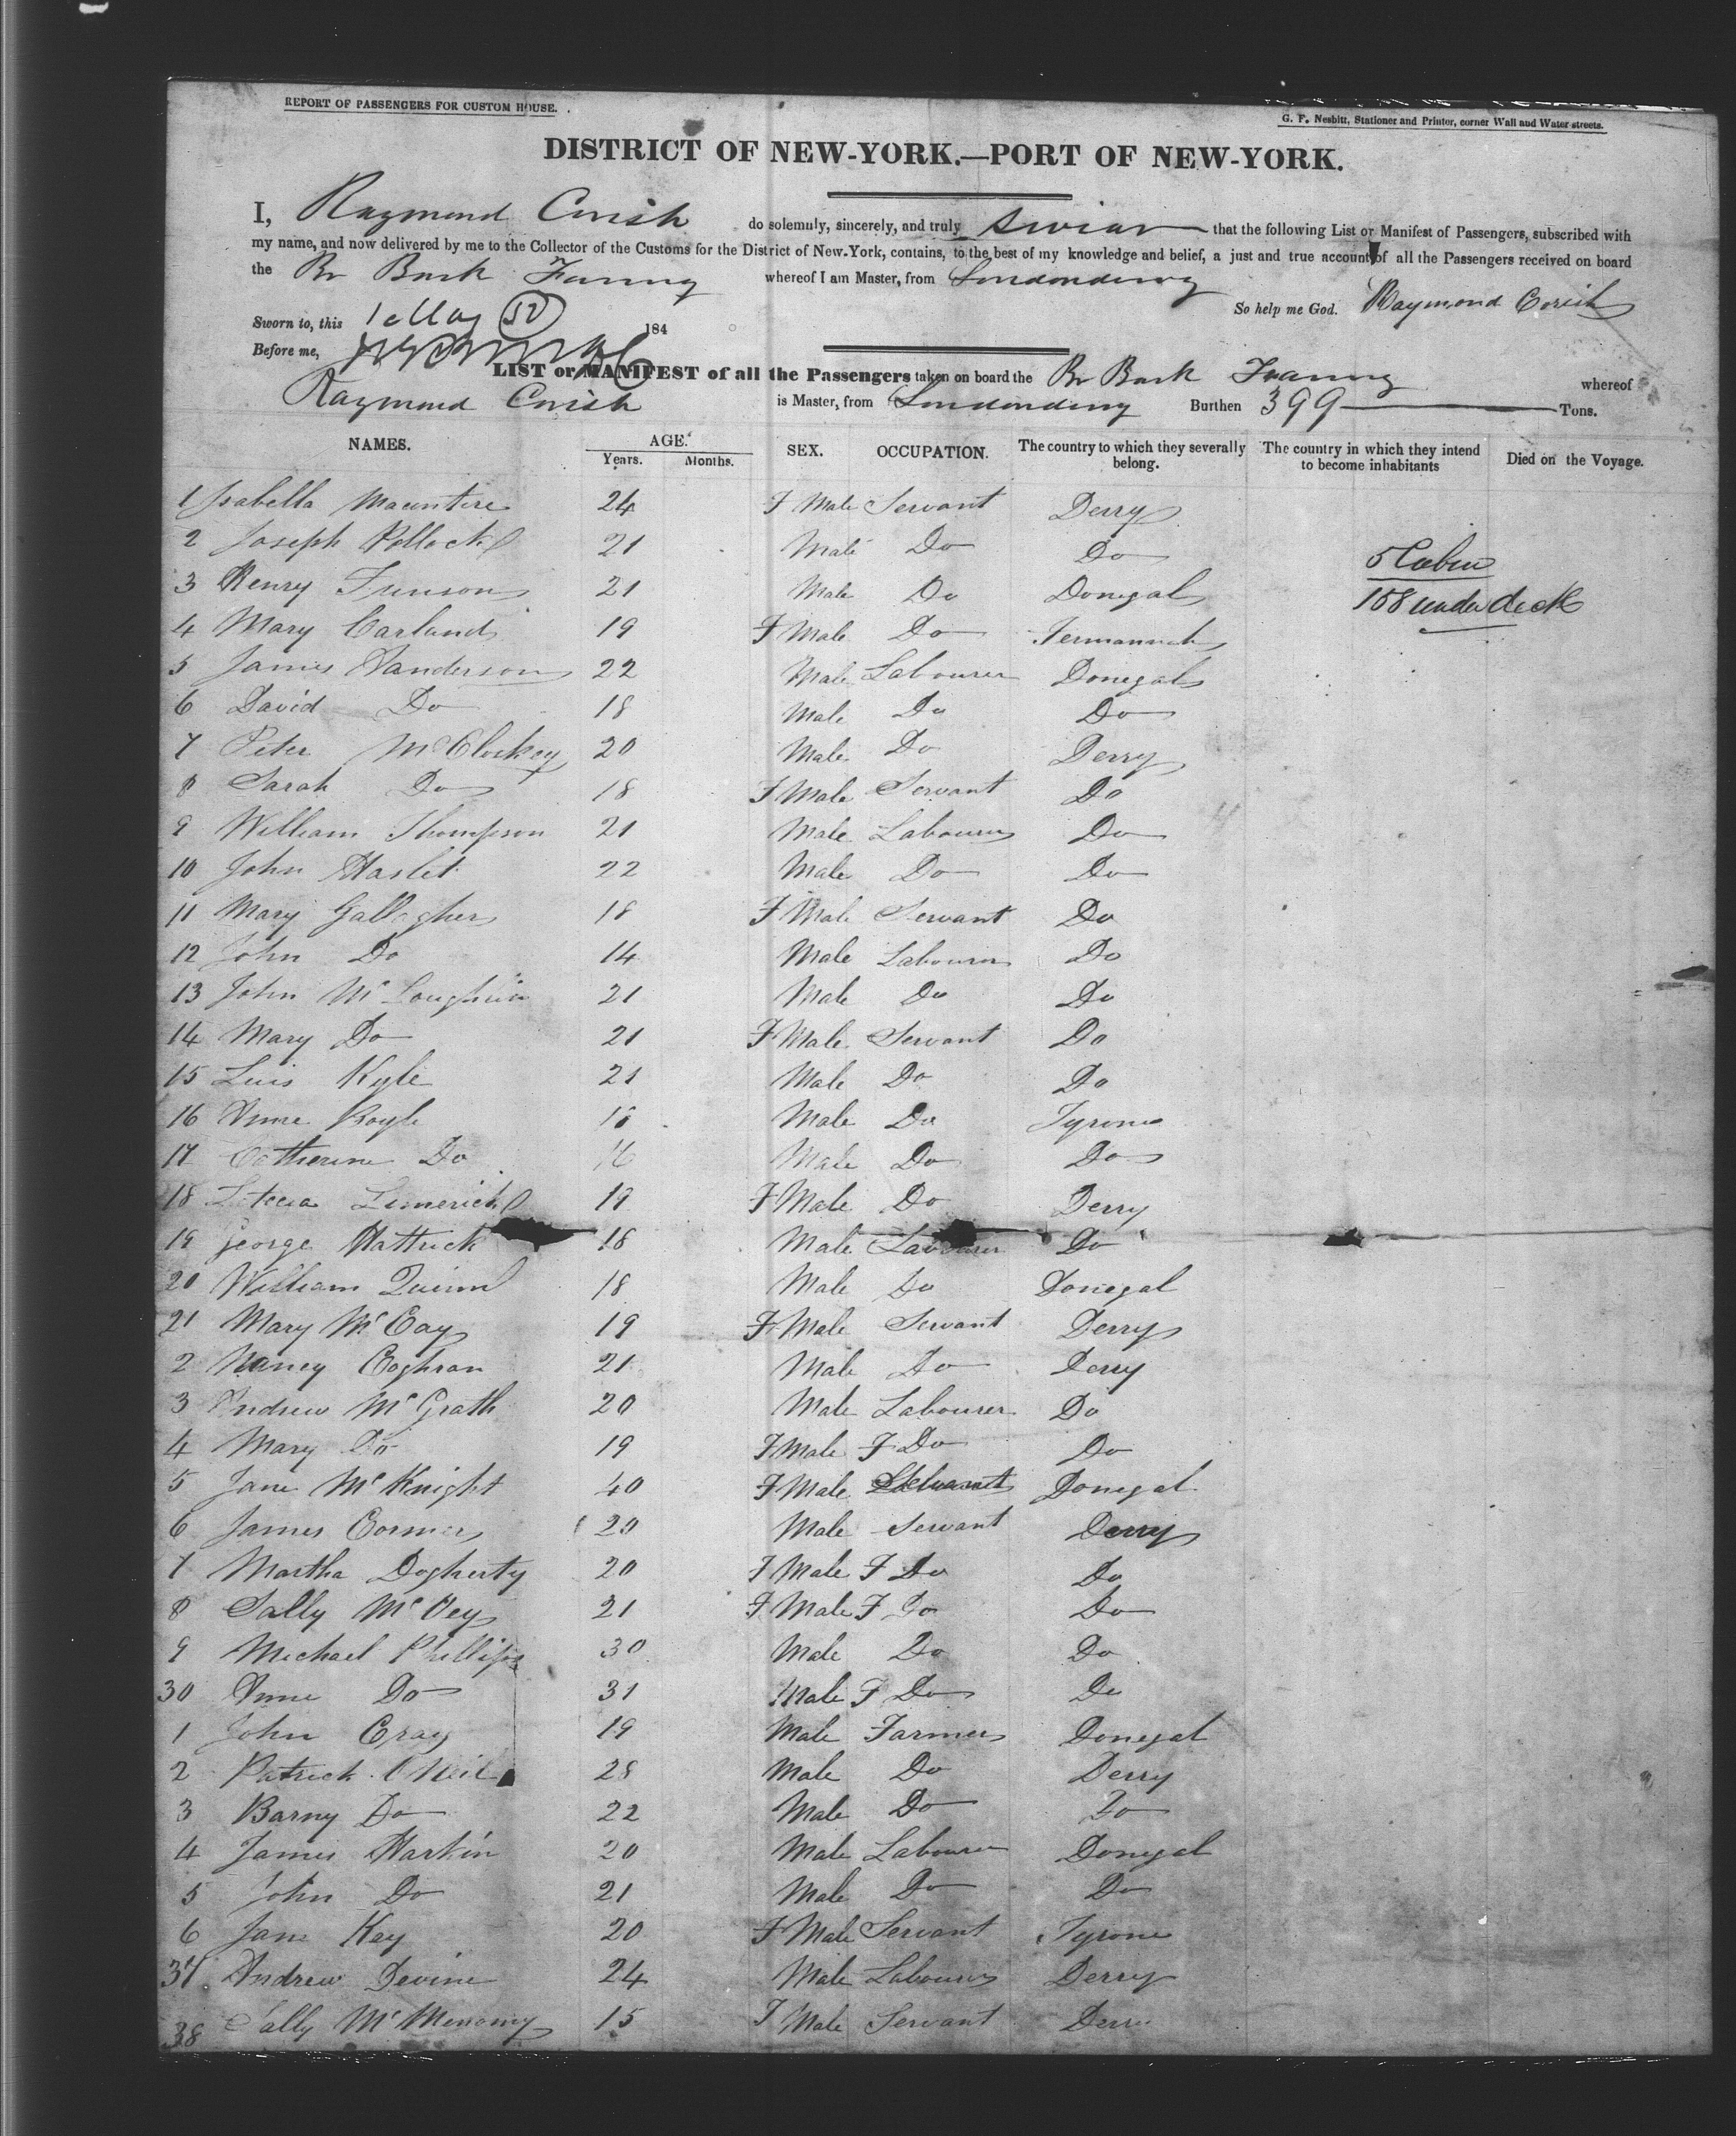 REPORT OF PASSENGERS FOR CUSTOM HOUSE.
G. F. Nesbitt, Stationer and Printer, corner Wall and Water-streets.
DISTRICT OF NEW-YORK.—PORT OF NEW-YORK.
I, Raymond Corish do solemnly, sincerely, and truly swear that the following List or Manifest of Passengers, subscribed with
my name, and now delivered by me to the Collector of the Customs for the District of New-York, contains, to the best of my knowledge and belief, a just and true account of all the Passengers received on board
the Br Bark Fanny whereof I am Master, from Londonderry
So help me God. Raymond Corish
Sworn to, this 1 May 50 184
Before me,
LIST or MANIFEST of all the Passengers taken on board the Br Bark Fanny whereof
Raymond Corish is Master, from Londonderry Burthen 399 Tons.
NAMES. AGE. Years. Months. SEX. OCCUPATION. The country to which they severally belong. The country in which they intend to become inhabitants Died on the Voyage.
1 Isabella Macuntire 24 F Male Servant Derry
2 Joseph Pollock 21 Male Do Do
5 Cabin
3 Henry 21 Male Do Donegal
158 under deck
4 Mary Carland 19 F Male Do Fermanagh
5 James Sanderson 22 Male Labourer Donegal
6 David Do 18 Male Do Do
7 Peter McCloskey 20 Male Do Derry
8 Sarah Do 18 F Male Servant Do
9 William Thompson 21 Male Labourer Do
10 John Haslet 22 Male Do Do
11 Mary Gallagher 18 F Male Servant Do
12 John Do 14 Male Labourer Do
13 John McLoughlin 21 Male Do Do
14 Mary Do 21 F Male Servant Do
15 Luis Kyle 21 Male Do Do
16 Anne Boyle 18 Male Do Tyrone
17 Catherine Do 16 Male Do Do
18 Letecia Limerick 19 F Male Do Derry
19 George Hattrick 18 Male Labourer Do
20 William Quinn 18 Male Do Donegal
21 Mary McCay 19 F Male Servant Derry
2 Nancy Coghran 21 Male Do Derry
3 Andrew McGrath 20 Male Labourer Do
4 Mary Do 19 F Male F Do Do
5 Jane McKnight 40 F Male Servant Donegal
6 James Cormer 20 Male Servant Derry
7 Martha Dogherty 20 F Male F Do Do
8 Sally McVey 21 F Male F Do Do
9 Michael Phillips 30 Male Do Do
30 Anne Do 31 Male F Do Do
1 John Gray 19 Male Farmer Donegal
2 Patrick ONeil 28 Male Do Derry
3 Barny Do 22 Male Do Do
4 James Harkin 20 Male Labourer Donegal
5 John Do 21 Male Do Do
6 Jane Kay 20 F Male Servant Tyrone
37 Andrew Devine 24 Male Labourer Derry
38 Sally McMenomy 15 F Male Servant Derry